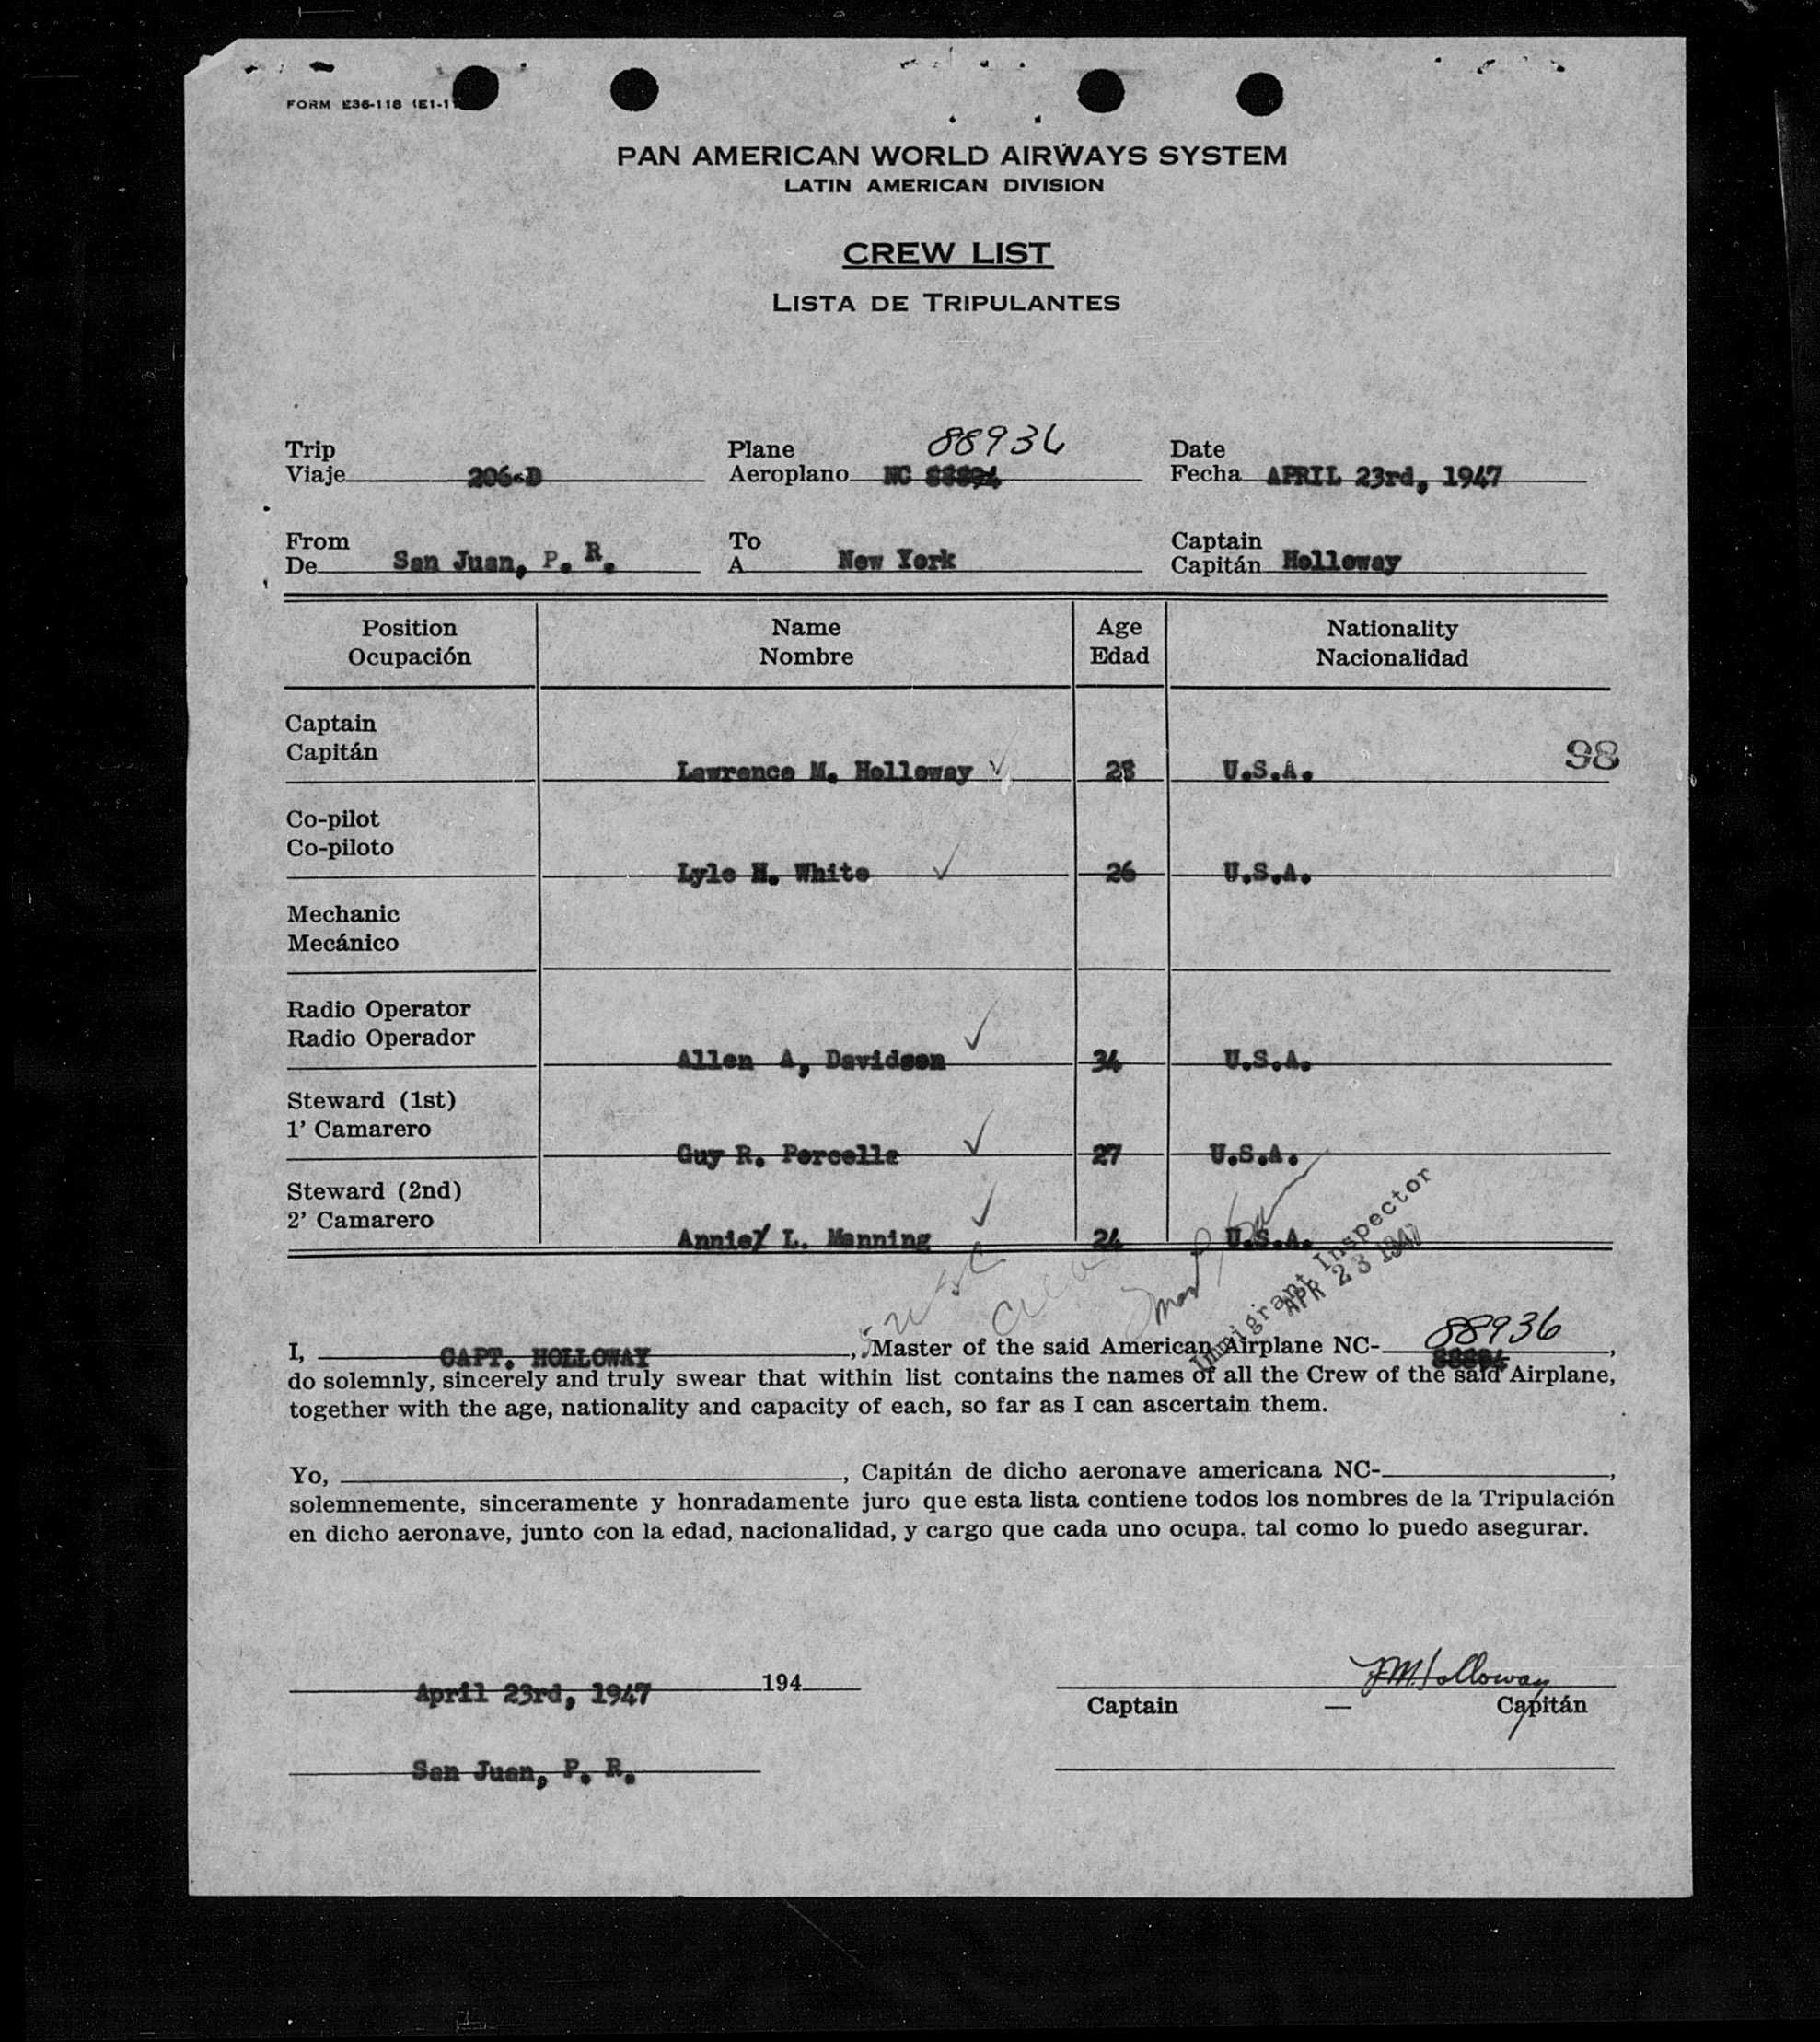 FORM E36-118 (E1-1
PAN AMERICAN WORLD AIRWAYS SYSTEM
LATIN AMERICAN DIVISION
CREW LIST
LISTA DE TRIPULANTES
88936
Trip Plane Date
Viaje 206-D Aeroplano NC Fecha APRIL 23rd, 1947
From To Captain
De San Juan, P. R. A New York Capitán Holloway
Position Name Age Nationality
Ocupación Nombre Edad Nacionalidad
Captain
Capitán 98
Lawrence M. Holloway ✓ U.S.A.
Co-pilot
Co-piloto
Lyle H. White ✓ 26 U.S.A.
Mechanic
Mecánico
Radio Operator
Radio Operador
Allen A, Davidson ✓ 34 U.S.A.
Steward (1st)
1' Camarero
Guy R. Porcella ✓ 27 U.S.A.
Steward (2nd)
2' Camarero
Annie L. Manning ✓ 24 U.S.A.
Immigrant Inspector
APR 23 1947
88936
I, CAPT. HOLLOWAY, Master of the said American Airplane NC-,
do solemnly, sincerely and truly swear that within list contains the names of all the Crew of the said Airplane,
together with the age, nationality and capacity of each, so far as I can ascertain them.
Yo, , Capitán de dicho aeronave americana NC- ,
solemnemente, sinceramente y honradamente juro que esta lista contiene todos los nombres de la Tripulación
en dicho aeronave, junto con la edad, nacionalidad, y cargo que cada uno ocupa. tal como lo puedo asegurar.
LM Holloway
April 23rd, 1947 194
Captain — Capitán
San Juan, P. R.